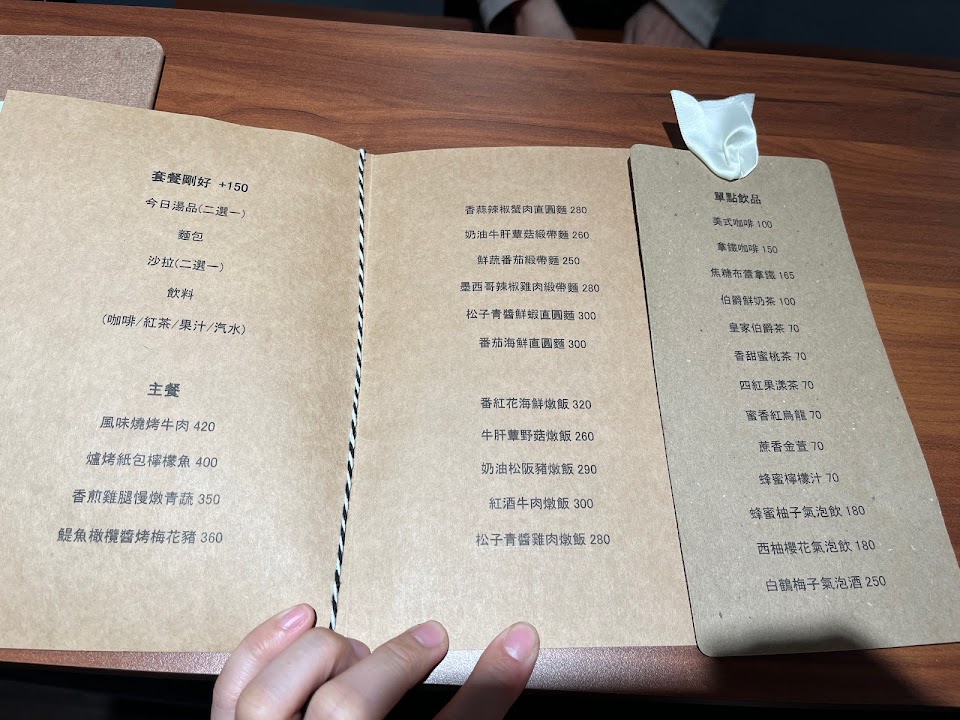 套餐剛好 +150
今日湯品(二選一)
麵包
沙拉(二選一)
飲料
(咖啡/紅茶/果汁/汽水)
主餐
風味燒烤牛肉 420
爐烤紙包檸檬魚 400
香煎雞腿慢燉青蔬 350
鯷魚橄欖醬烤梅花豬 360
香蒜辣椒蟹肉直圓麵 280
奶油牛肝蕈菇緞帶麵 260
鮮蔬番茄緞帶麵 250
墨西哥辣椒雞肉緞帶麵 280
松子青醬鮮蝦直圓麵 300
番茄海鮮直圓麵 300
番紅花海鮮燉飯 320
牛肝蕈野菇燉飯 260
奶油松阪豬燉飯 290
紅酒牛肉燉飯 300
松子青醬雞肉燉飯 280
單點飲品
美式咖啡 100
拿鐵咖啡 150
焦糖布蕾拿鐵 165
伯爵鮮奶茶 100
皇家伯爵茶 70
香甜蜜桃茶 70
四紅果漾茶 70
蜜香紅烏龍 70
蔗香金萱 70
蜂蜜檸檬汁 70
蜂蜜柚子氣泡飲 180
西柚櫻花氣泡飲 180
白鶴梅子氣泡酒 250